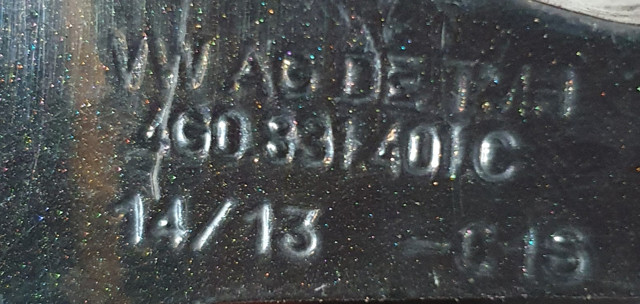 VW AG DE TMH
4G0 831 401 C
14/13 -C18